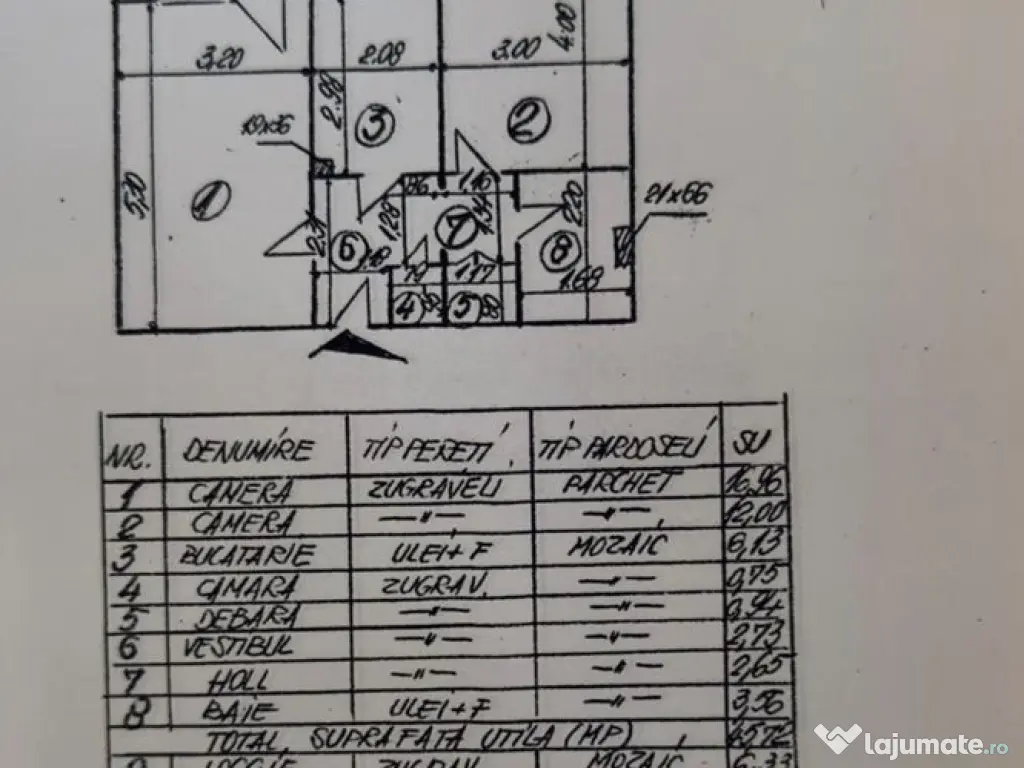 3,20 2.08 3.00 4.00
2.98
19x56 3 2
5,30 1 86 1.16 21x66
2.31 1,28 1.54 2.20
6 7 8
1.18 70 1.17 1.68
4 5 88
NR. DENUMIRE TIP PERETI TIP PARDOSELI SU
1 CAMERA ZUGRAVELI PARCHET 16,96
2 CAMERA —"— —"— 12,00
3 BUCATARIE ULEI+F MOZAIC 6,13
4 CAMARA ZUGRAV. —"— 0,75
5 DEBARA —"— —"— 0,94
6 VESTIBUL —"— —"— 2,73
7 HOLL —"— —"— 2,65
8 BAIE ULEI+F —"— 3,56
TOTAL SUPRAFATA UTILA (MP) 45,72
9 LOGGIE ZUGRAV. MOZAIC 6,33
lajumate.ro